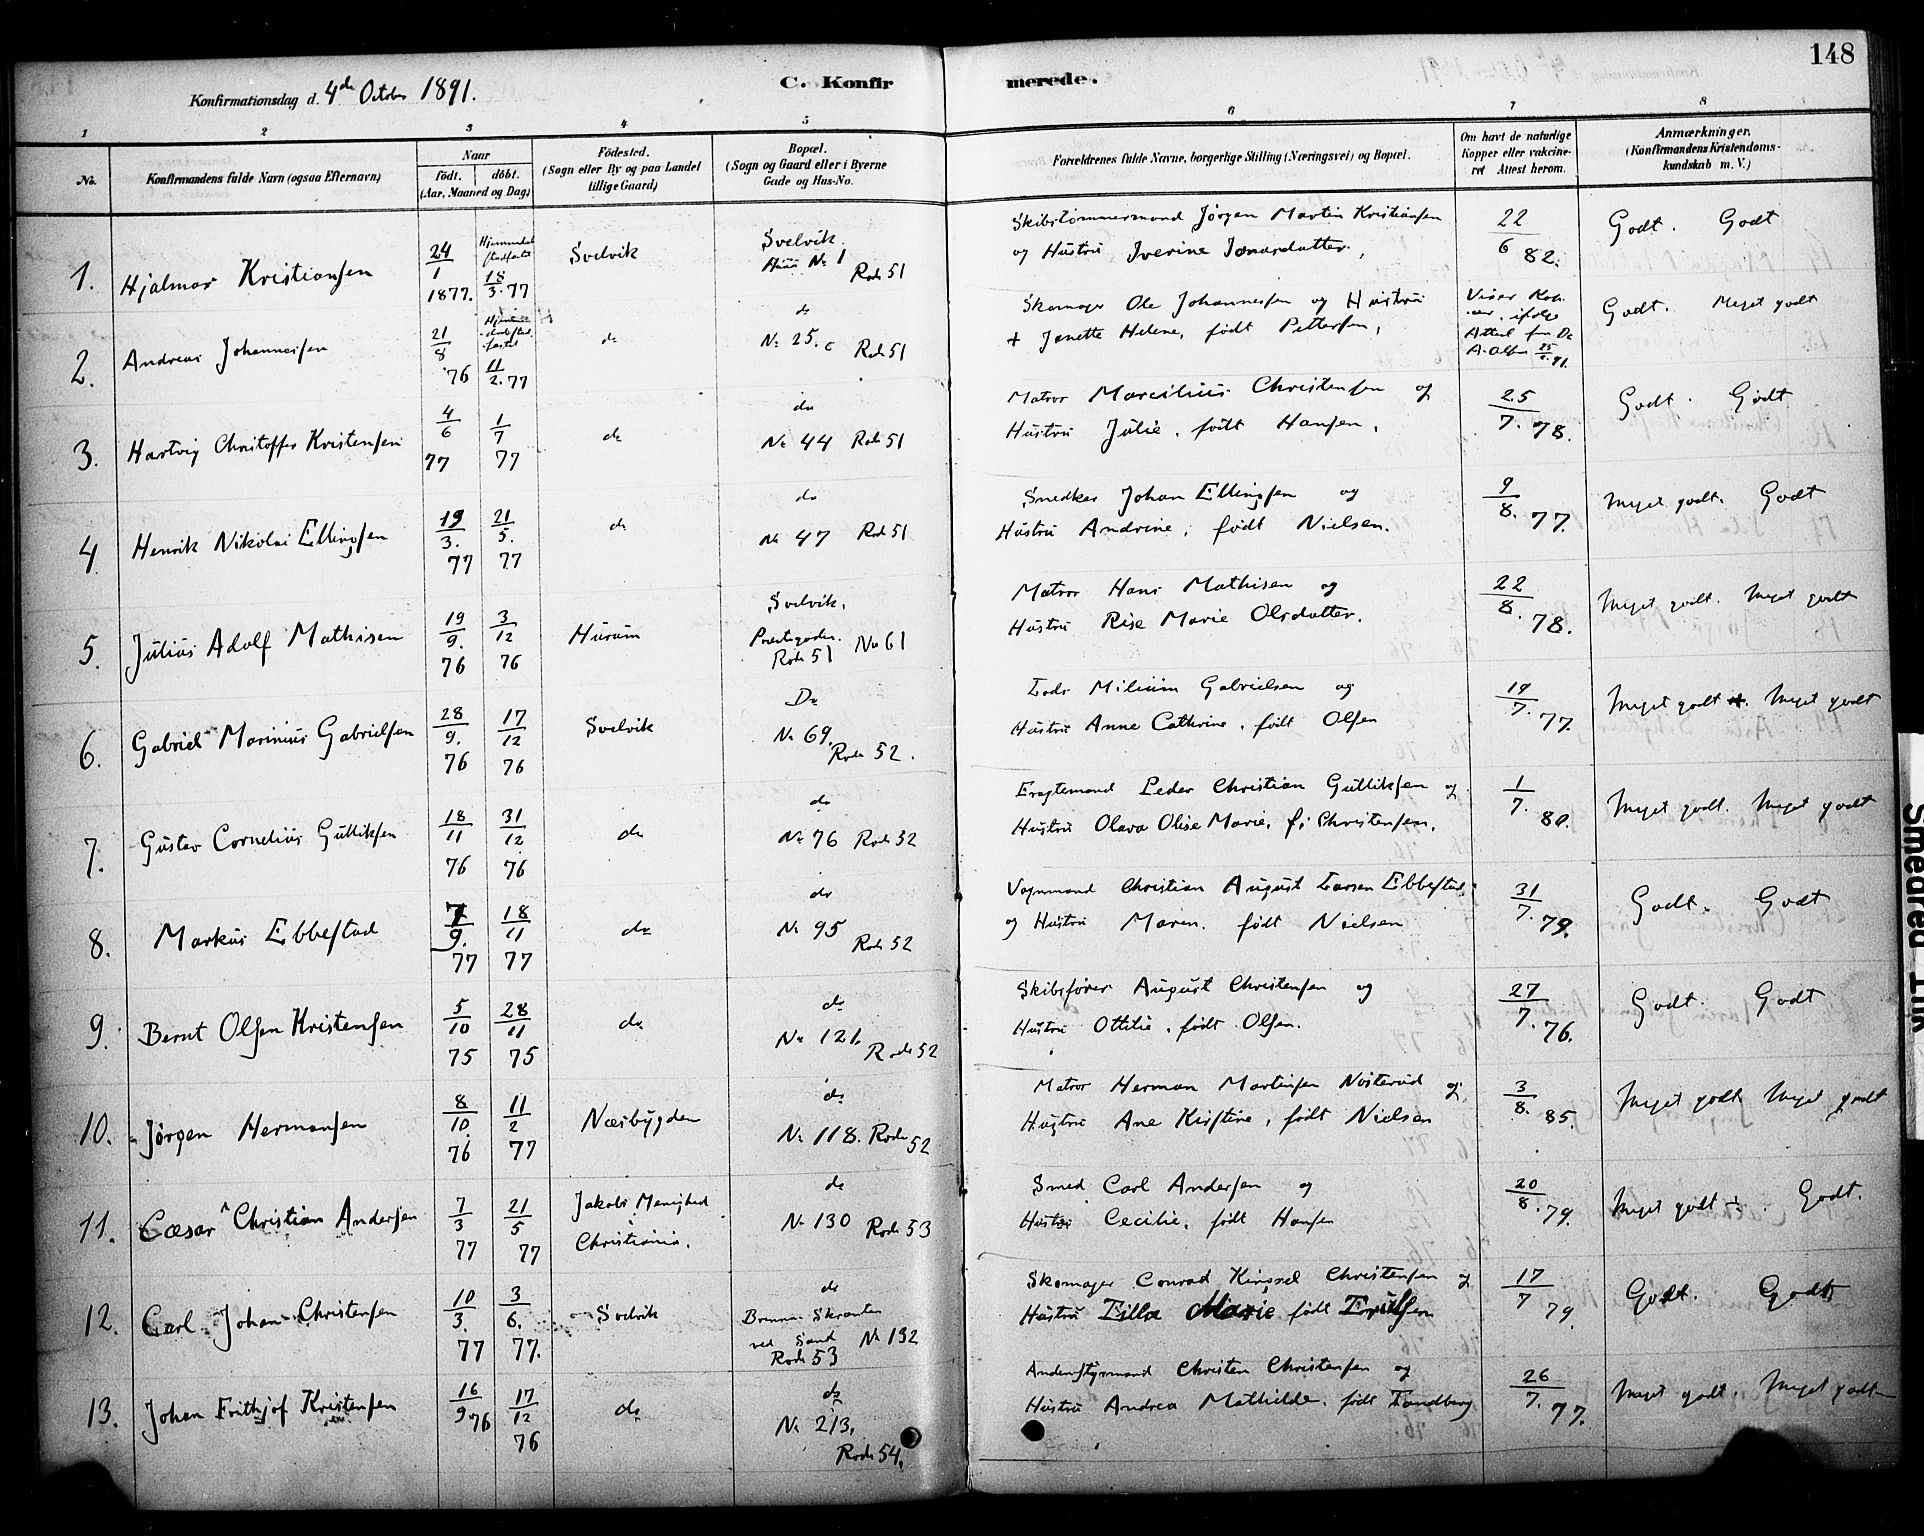 148
Konfirmationsdag d. 4de October 1891.
C. Konfirmerede.
1 2 3 4 5 6 7 8
No.
Konfirmandens fulde Navn (ogsaa Efternavn)
Naar
födt. döbt.
(Aar, Maaned og Dag)
Födested.
(Sogn eller By og paa Landet
tillige Gaard)
Bopæl.
(Sogn og Gaard eller i Byerne
Gade og Hus-No.
Forældrenes fulde Navne, borgerlige Stilling (Næringsvei) og Bopæl.
Om havt de naturlige
Kopper eller vakcine-
ret Attest herom.
Anmærkninger.
(Konfirmandens Kristendoms-
kundskab m. V.)
1. Hjalmar Kristiansen
24/1 1877.
18/3. 77
Svelvik
Svelvik.
Huus No 1
Rode 51
Skibstømmermand Jörgen Martin Kristiansen
og Hustru Iverine
22/6 82.
Godt. Godt
2. Andreas Johannesen
21/8 76
11/2. 77
do
do
No 25. c Rode 51
Skomager Ole Johannesen og Hustru
+ Janette Helene, født Pettersen,
Attest fra Dr
Godt. Meget godt
3. Hartvig Christoffer Kristensen
4/6 77
1/7 77
do
do
No 44 Rode 51
Matros Marcilius Christensen og
Hustru Julie, født Hansen,
25/7. 78.
Godt. Godt
4. Henrik Nikolai Ellingsen
19/3. 77
21/5. 77
do
do
No 47 Rode 51
Snedker Johan Ellingsen og
Hustru Andrine, født Nielsen.
9/8. 77.
Meget godt. Godt
5. Julius Adolf Mathisen
19/9. 76
3/12 76
Hurum
Svelvik.
No 61
Rode 51
Matros Hans Mathisen og
Hustru Rise Marie Olsdatter.
22/8. 78.
Meget godt. Meget godt
6. Gabriel Marinius Gabrielsen
28/9. 76
17/12 76
Svelvik
Do
No 69.
Rode 52.
Lods Gabrielsen og
Hustru Anne Cathrine, født Olsen
19/7. 77.
Meget godt +. Meget godt
7. Gustav Cornelius Gulliksen
18/11 76
31/12 76
do
do
No 76 Rode 52
Fragtemand Peder Christian Gulliksen og
Hustru Olava Olise Marie, f: Christensen.
1/7. 80.
Meget godt. Meget godt
8. Markus Ebbestad
7/9. 77
18/11 77
do
do
No 95
Rode 52
Vognmand Christian August Larsen Ebbestad
og Hustru Maren, født Nielsen
31/7. 79.
Godt. Godt
9. Bernt Olsen Kristensen
5/10 75
28/11 75
do
do
No 121.
Rode 52
Skibsfører August Christensen og
Hustru Ottilie, født Olsen.
27/7. 76.
Godt. Godt
10. Jörgen Hermansen
8/10. 76
11/2 77
Næsbygden
do
No 118. Rode 52
Matros Herman Martinsen Nosterud og
Hustru Ane Kirstine, født Nielsen
3/8. 85.
Meget godt Meget godt
11. Cæsar Christian Andersen
7/3 77
21/5 77
Jakobs Menighed
i
Christiania.
do
No 130 Rode 53
Smed Carl Andersen og
Hustru Cecilie, født Hansen
20/8. 79.
Meget godt +. Godt.
12. Carl Johan Christensen
10/3. 77
3/6. 77.
Svelvik
do
ved Sand No 132
Rode 53
Skomager Conrad Christensen og
Hustru Marie født
17/7 79.
Godt. Godt
13. Johan Frithjof Kristensen
16/9 76
17/12 76
do
do
No 213.
Rode 54.
Andenstyrmand Christen Christensen og
Hustru Andrea Mathilde, født Tandberg
26/7. 77.
Meget godt. Meget godt